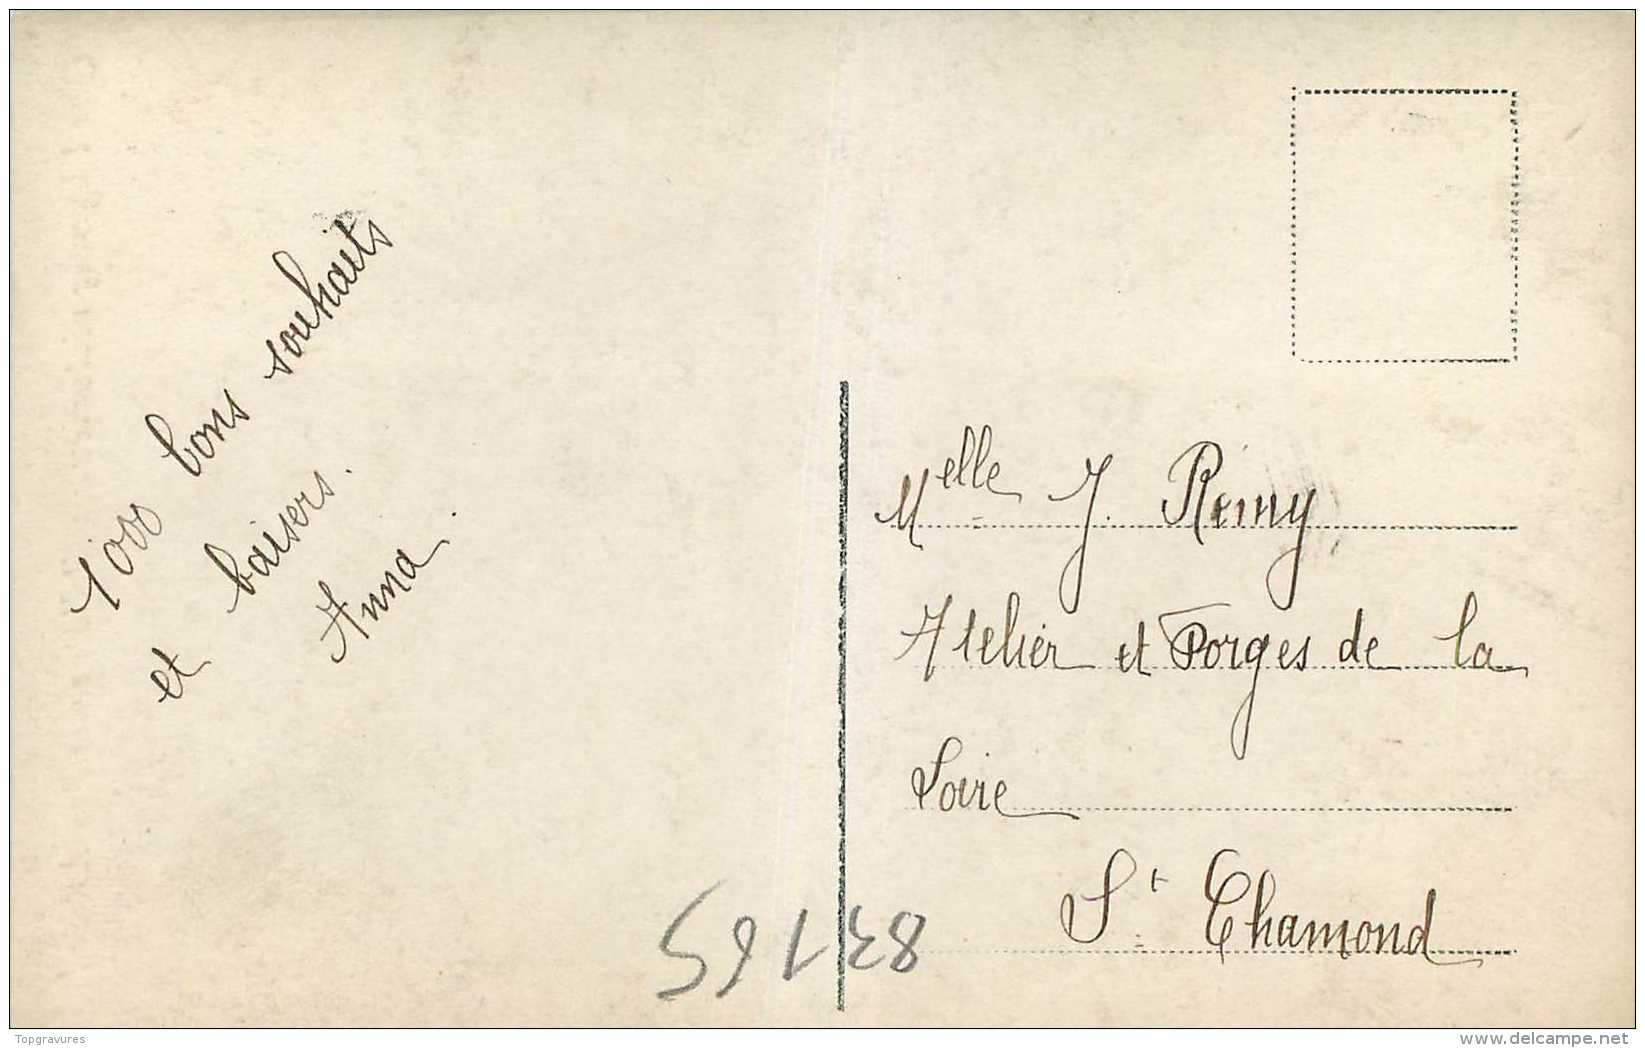 1000 bons souhaits
et baisers.
Anna.
Melle J. Rémy
Atelier et Forges de la
Loire
St Chamond
Topgravures
www.delcampe.net